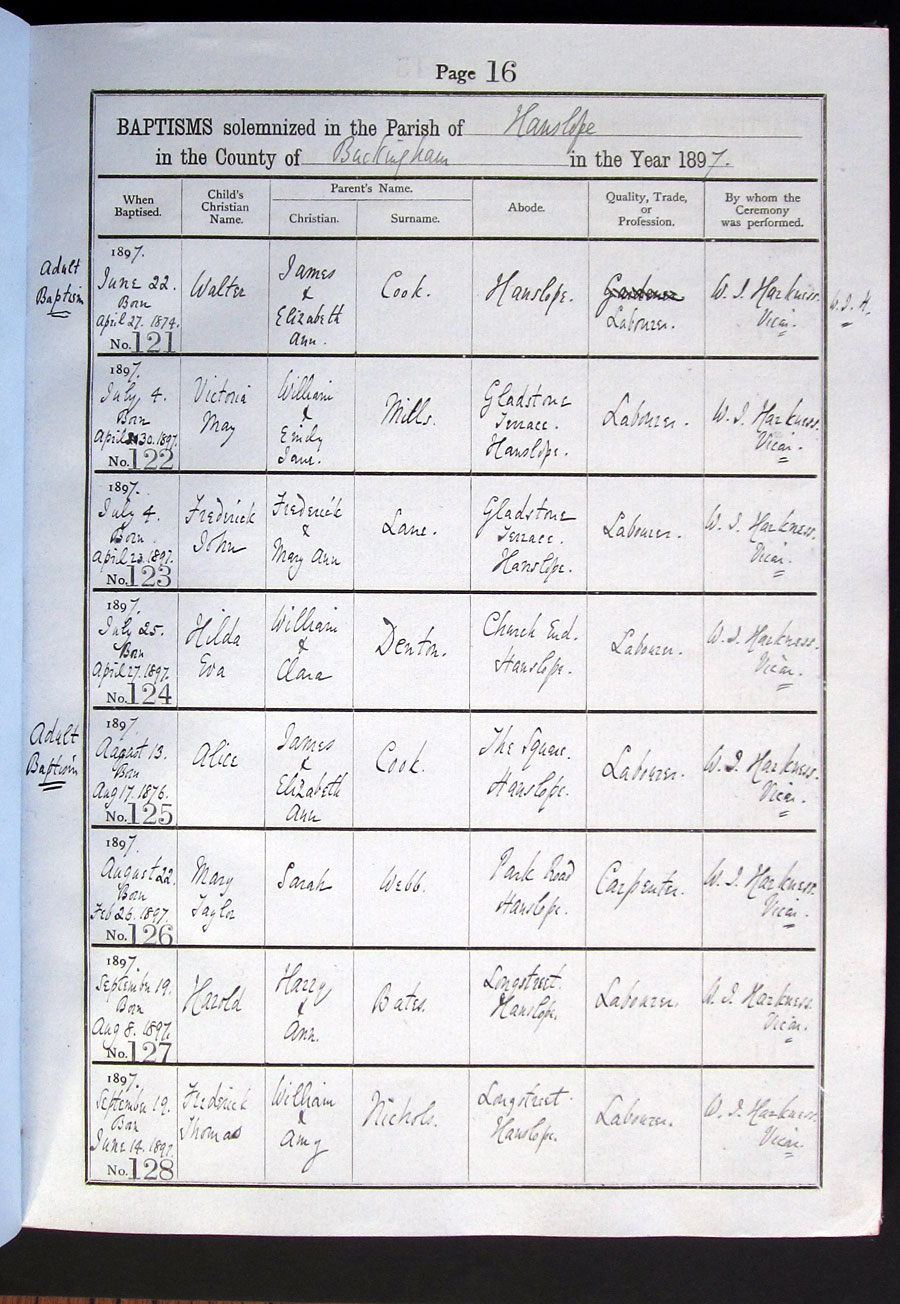 Page 16
BAPTISMS solemnized in the Parish of Hanslope
in the County of Buckingham in the Year 1897.
When Baptised.
Child's Christian Name.
Parent's Name.
Christian.
Surname.
Abode.
Quality, Trade, or Profession.
By whom the Ceremony was performed.
Adult
Baptism
1897.
June 22.
Born
April 27. 1874.
No. 121
Walter
James
&
Elizabeth
Ann.
Cook.
Hanslope.
Gardener
Labourer.
W. J. Harkness.
Vicar.
W. J. H.
1897.
July 4.
Born
April 30. 1897.
No. 122
Victoria
May
William
&
Emily
Jane.
Mills.
Gladstone
Terrace.
Hanslope.
Labourer.
W. J. Harkness.
Vicar.
1897.
July 4.
Born
April 23. 1897.
No. 123
Frederick
John
Frederick
&
Mary Ann
Lane.
Gladstone
Terrace.
Hanslope.
Labourer.
W. J. Harkness.
Vicar.
1897.
July 25.
Born
April 27. 1897.
No. 124
Hilda
Eva
William
&
Clara
Denton.
Church End.
Hanslope.
Labourer.
W. J. Harkness.
Vicar.
Adult
Baptism
1897.
August 13.
Born
Aug 17. 1876.
No. 125
Alice
James
&
Elizabeth
Ann
Cook.
The Square.
Hanslope.
Labourer.
W. J. Harkness.
Vicar.
1897.
August 22.
Born
Feb 26. 1897.
No. 126
Mary
Taylor
Sarah
Webb.
Park Road
Hanslope.
Carpenter.
W. J. Harkness.
Vicar.
1897.
September 19.
Born
Aug 8. 1897.
No. 127
Harold
Harry
&
Ann.
Bates.
Longstreet.
Hanslope.
Labourer.
W. J. Harkness.
Vicar.
1897.
September 19.
Born
June 14. 1897.
No. 128
Frederick
Thomas
William
&
Amy
Nichols.
Longstreet.
Hanslope.
Labourer.
W. J. Harkness.
Vicar.